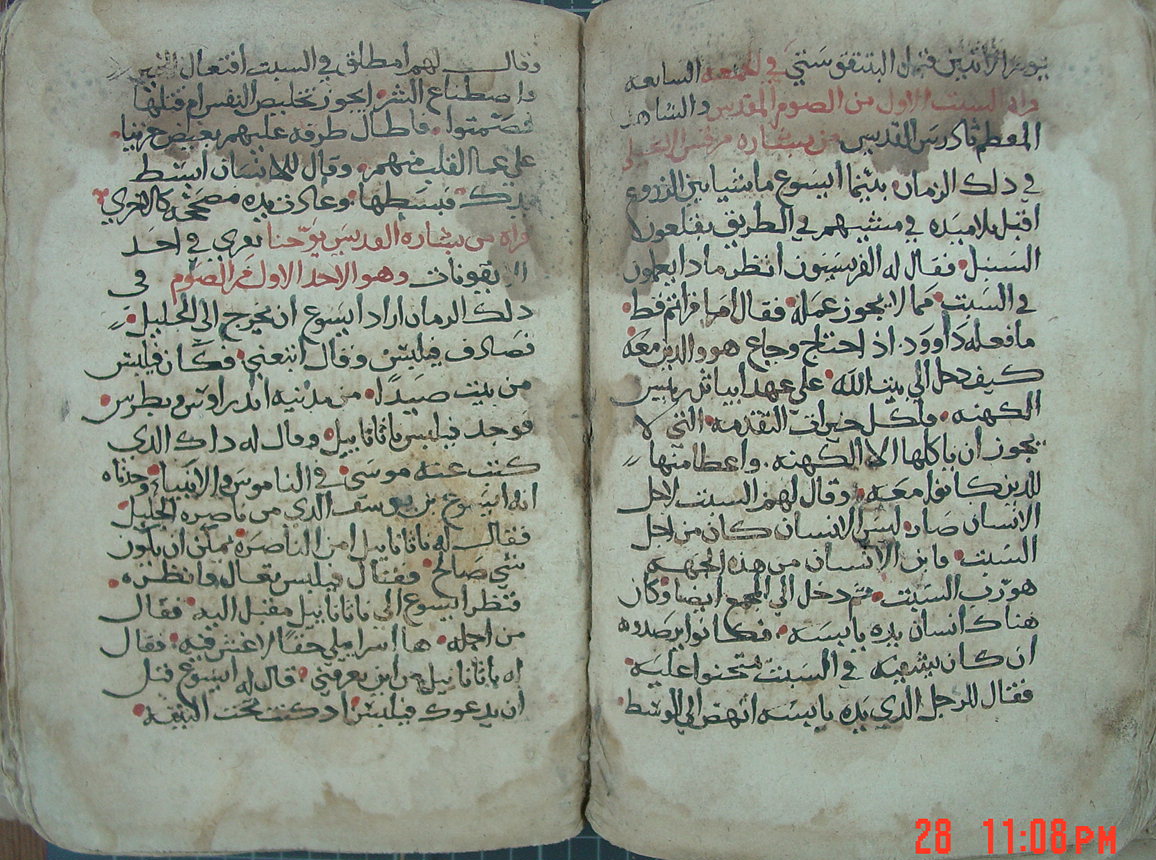 يوم الاثنين قبل البنتقوستي في الجمعه السابعه
السبت الاول من الصوم المقدس والشاهد
المعظم ثادرس القديس من بشاره مرقس
في ذلك الزمان بينما ايسوع ماشيا بين الزروع
اقبل تلاميذه في مشيهم في الطريق يقلعون
السنبل فقال له الفريسيون انظر ماذا يعملون
في السبت مما لا يجوز عمله فقال اما قراتم قط
ما فعله داوود اذ احتاج وجاع هو والذين معه
كيف دخل الى بيت الله على عهد ابياثر رييس
الكهنه واكل خبزات التقدمه التي لا
يجوز ان ياكلها الا الكهنه واعطا منها
للذين كانوا معه وقال لهم السبت لاجل
الانسان صار ليس الانسان كان من اجل
السبت فابن الانسان من هذه الجهه
هو رب السبت ثم دخل الى المجمع ايضا وكان
هناك انسان يده يابسه فكانوا يرصدوه
ان كان يشفيه في السبت ليتمحنوا عليه
فقال للرجل الذي يده يابسه انهض الى الوسط
وقال لهم امطلق في السبت افتعال الخير
واصطناع الشر ايجوز تخليص النفس ام قتلها
فصمتوا فاطال طرفه عليهم بغيض حزينا
على عما القلب منهم وقال للانسان ابسط
يدك فبسطها وعادت يده مصححه كالاخرى
قراه من بشاره القديس يوحنا يقرى في احد
الايقونات وهو الاحد الاول من الصوم في
ذلك الزمان اراد ايسوع ان يخرج الى الجليل
فصادف فيلبس وقال اتبعني وكان فيلبس
من بيت صيدا من مدنيه اندراوس وبطرس
فوجد فيلبس ناثاناييل وقال له ذاك الذي
كتب عنه موسى في الناموس والانبياء وجدناه
انه ايسوع بن يوسف الذي من ناصره الجليل
فقال له ناثاناييل امن الناصره يمكن ان يكون
شي صالح فقال فيلبس تعال وانظره
فنظر ايسوع الى ناثاناييل مقبل اليه فقال
من اجله ها اسراييلي حقا لا غش فيه فقال
له ناثاناييل من اين تعرفني قال له ايسوع قبل
ان يدعوك فيلبس اذ كنت تحت التينه
28 11:08PM